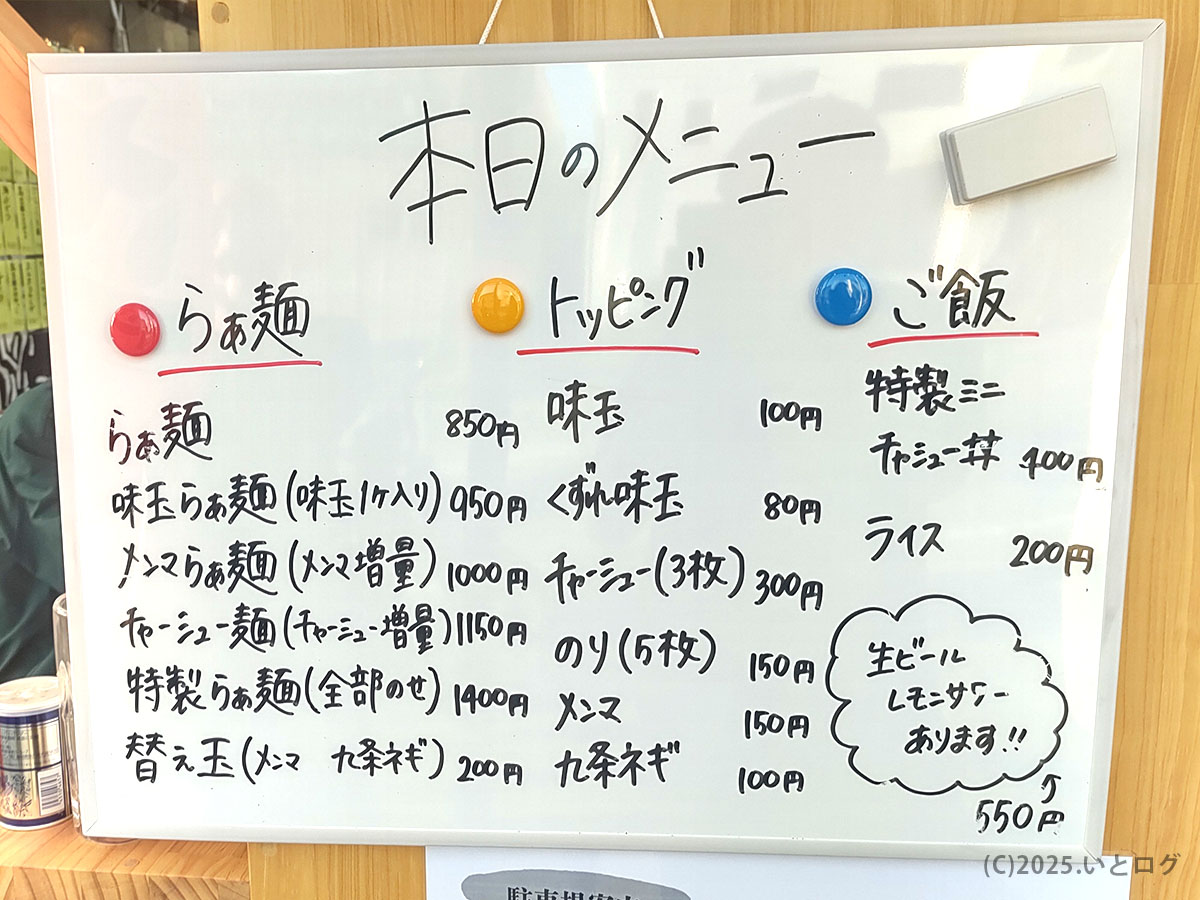 本日のメニュー
らぁ麺
らぁ麺 850円
味玉らぁ麺(味玉1ヶ入り) 950円
メンマらぁ麺(メンマ増量) 1000円
チャーシュー麺(チャーシュー増量) 1150円
特製らぁ麺(全部のせ) 1400円
替え玉(メンマ 九条ネギ) 200円
トッピング
味玉 100円
くずれ味玉 80円
チャーシュー(3枚) 300円
のり(5枚) 150円
メンマ 150円
九条ネギ 100円
ご飯
特製ミニ
チャシュー丼 400円
ライス 200円
生ビール
レモンサワー
あります!!
550円
(C)2025.いとログ